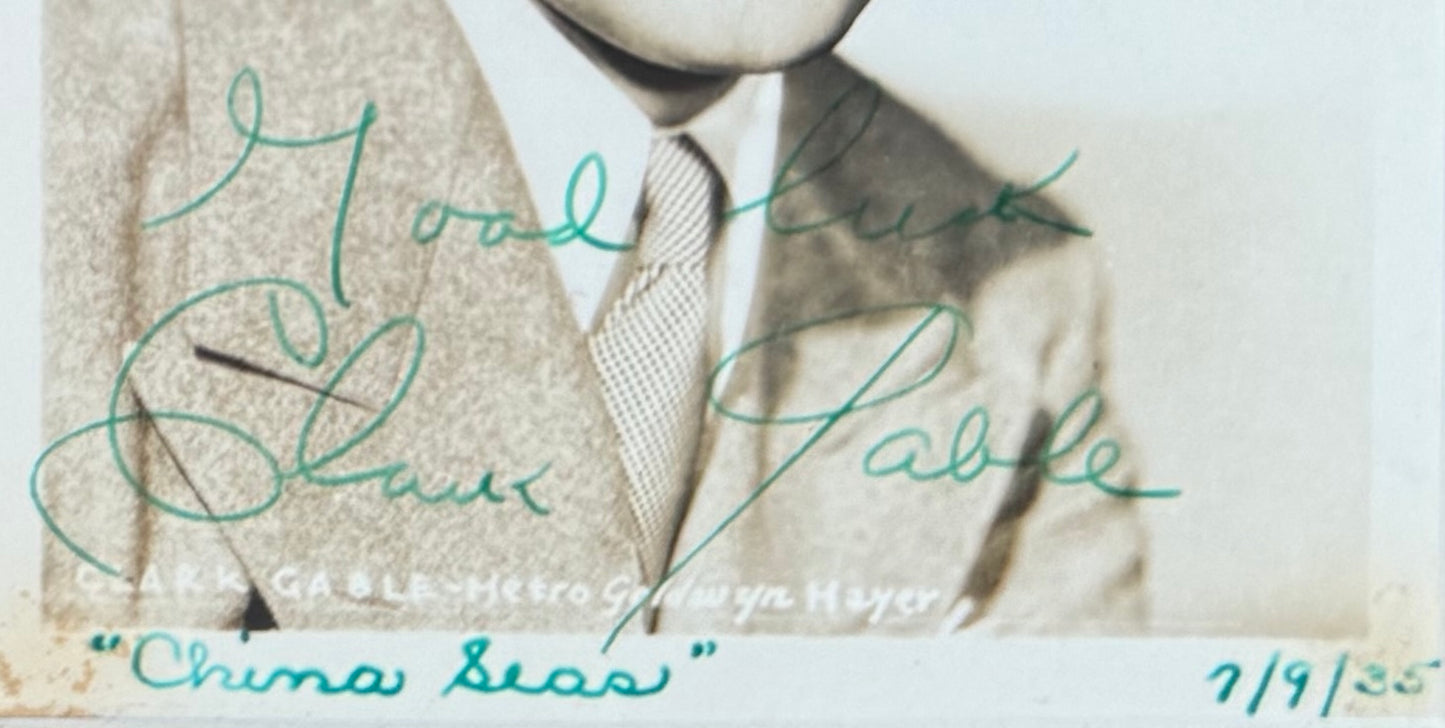 Good luck
Clark Gable
CLARK GABLE-Metro Goldwyn Mayer,
"China Seas"
7/9/35